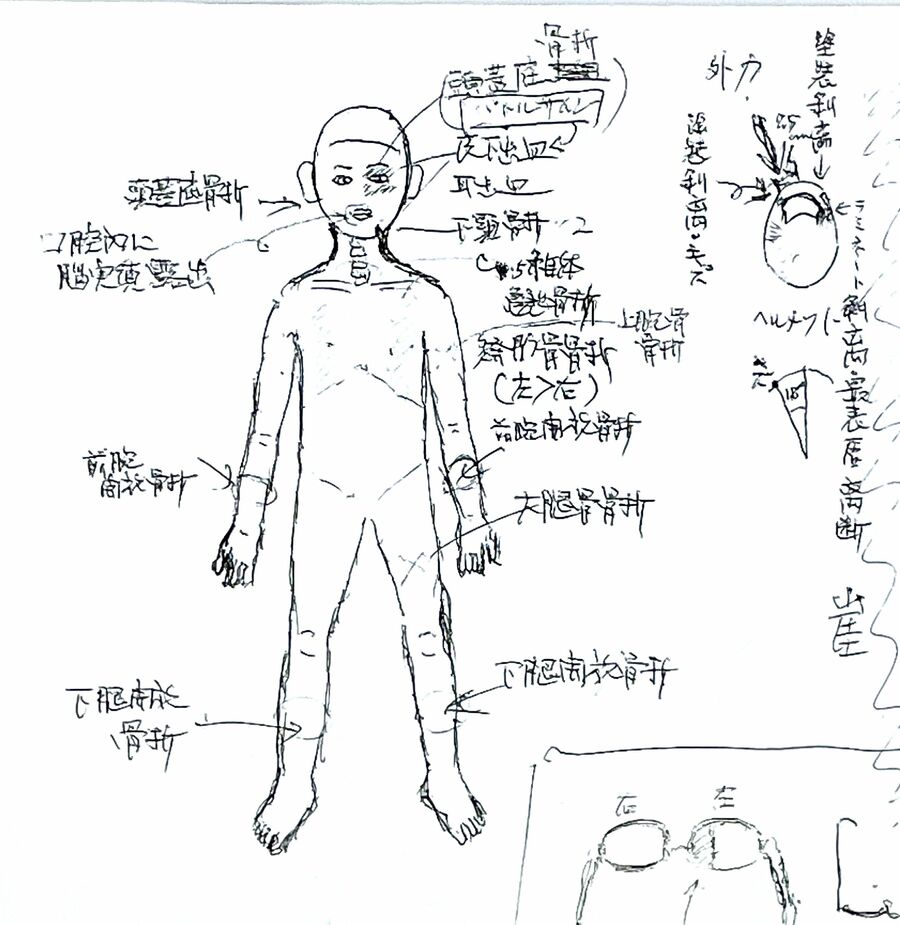 骨折
頭蓋底
バトルサイン
皮下出血
耳出血
頭蓋底骨折
口腔内に
脳実質露出
下顎骨折
椎体
骨折
肋骨骨折
(左>右)
上腕骨
骨折
前腕開放骨折
前腕
開放骨折
大腿骨骨折
下腿開放骨折
下腿開放
骨折
外力
塗装剥離
塗装剥離・キズ
ラミネート剥離
最表層離断
ヘルメット
キズ
18°
崖
右
左